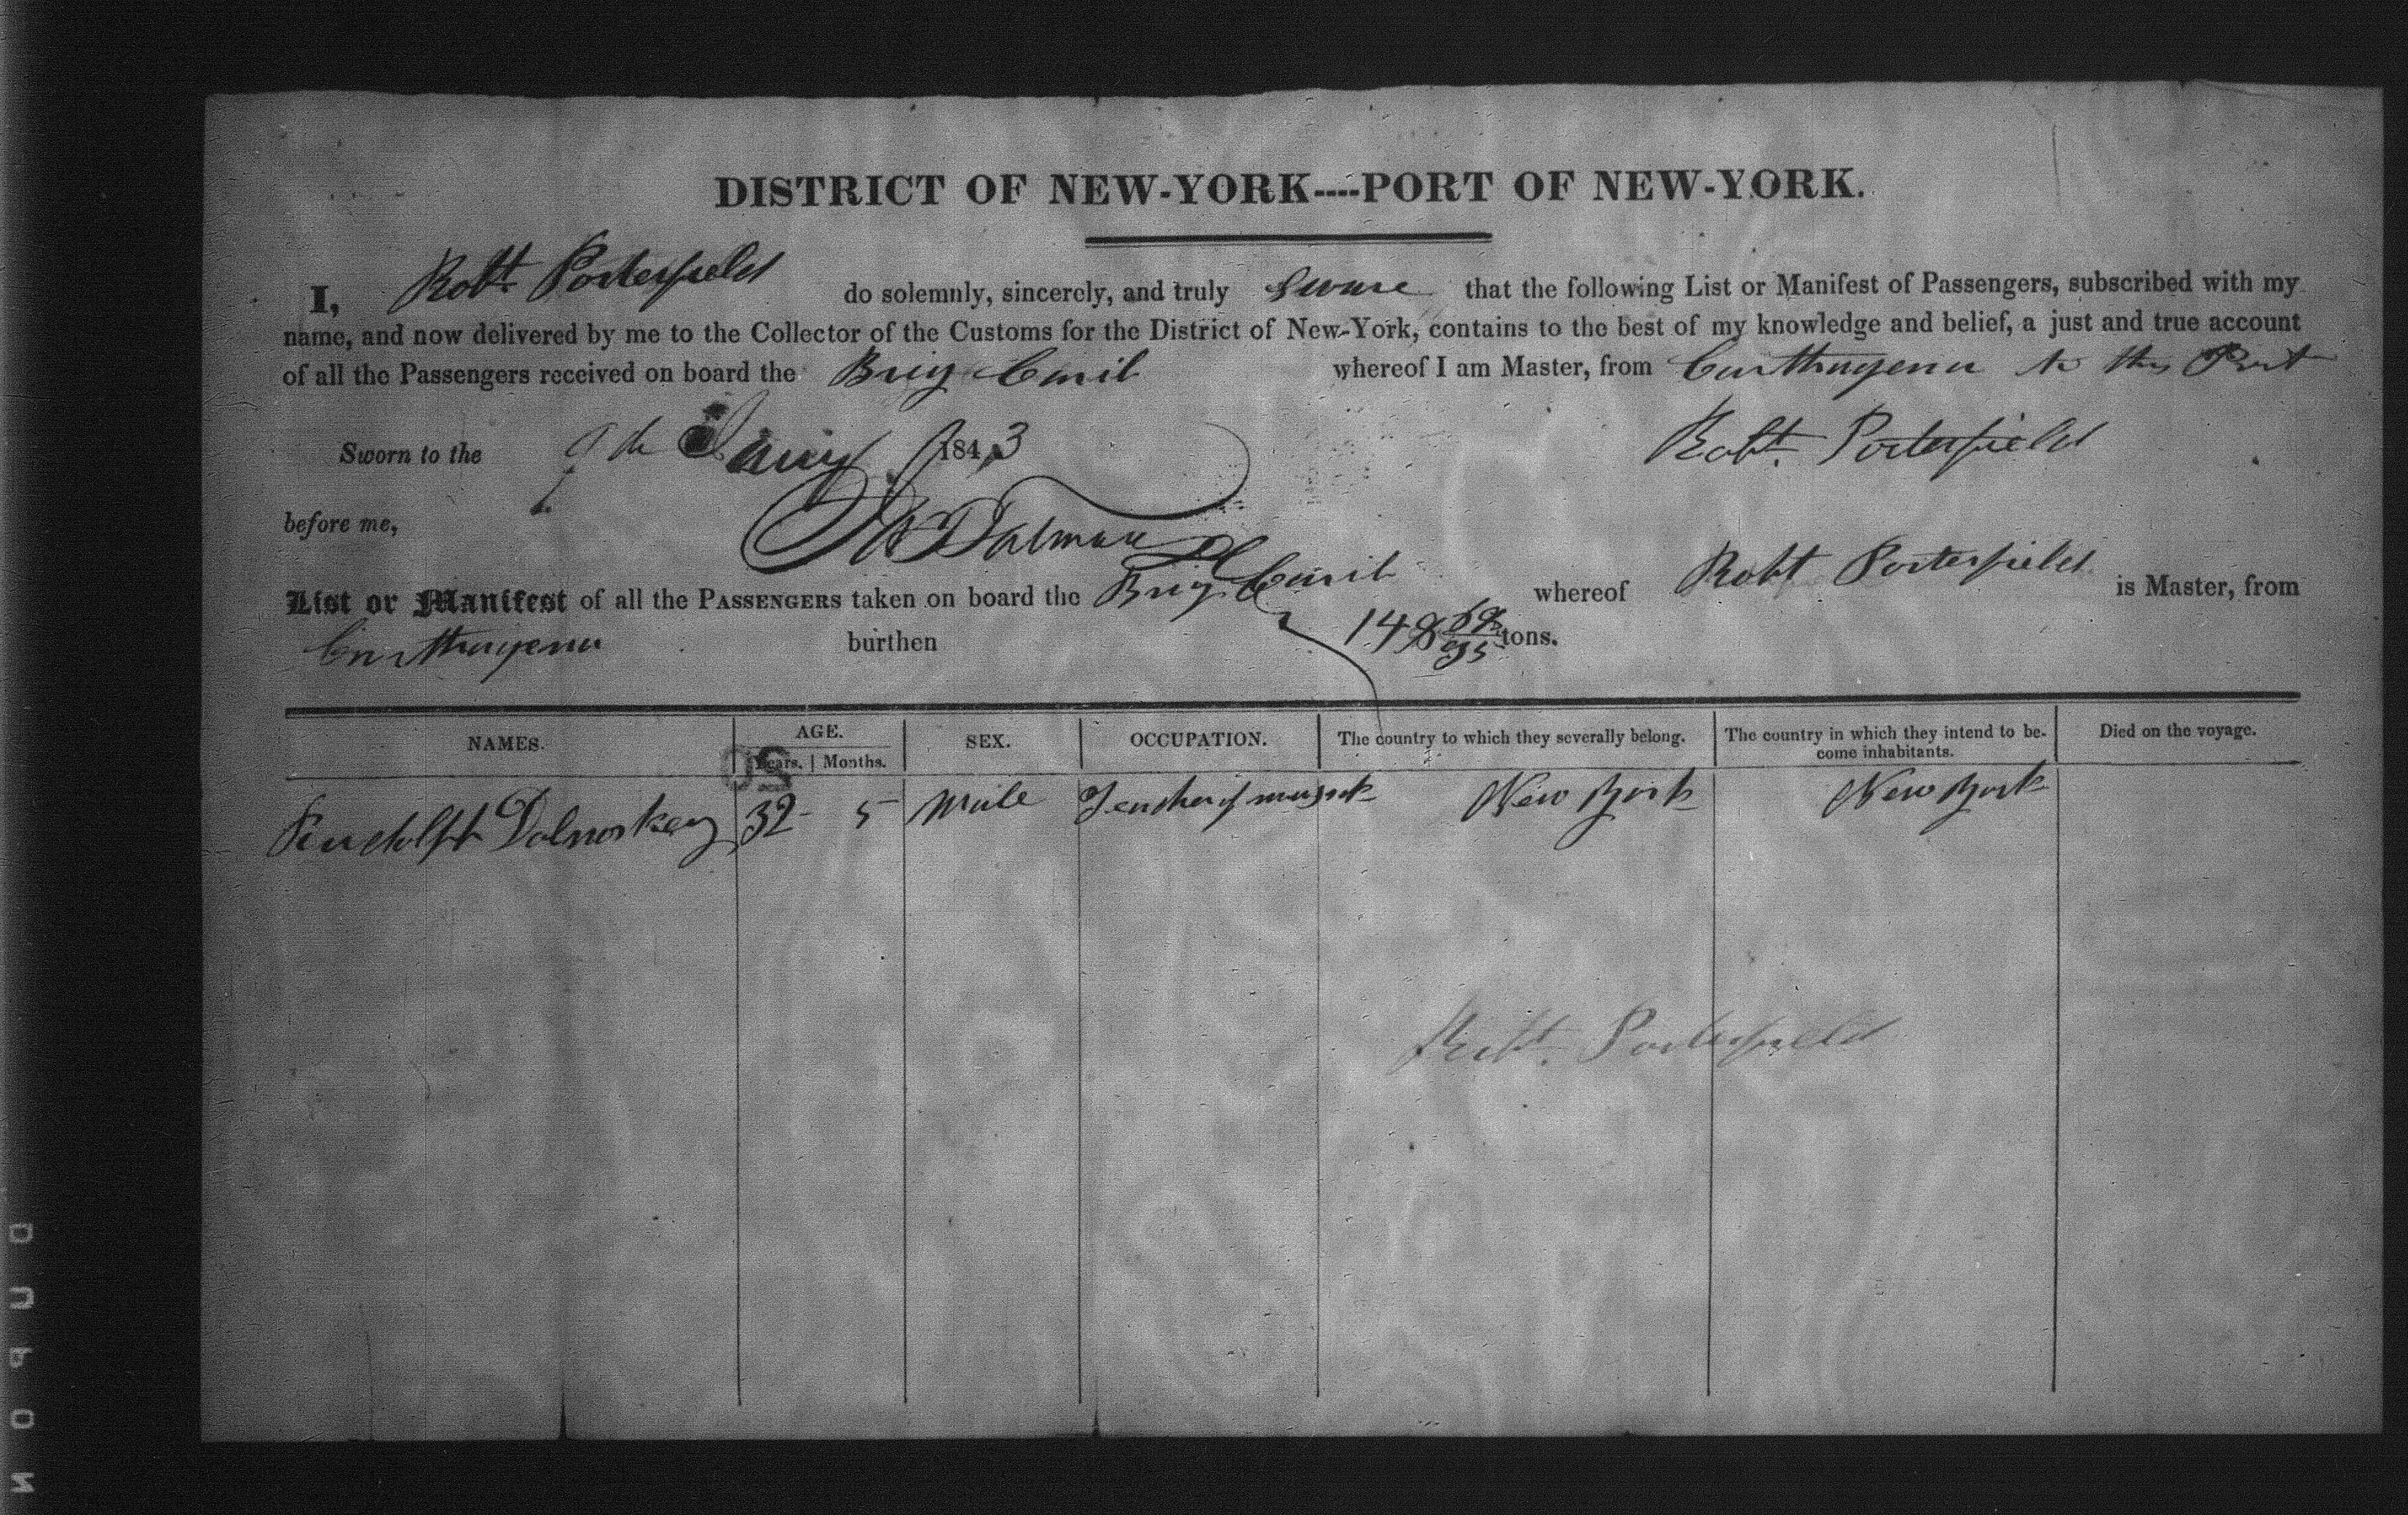 DISTRICT OF NEW-YORK----PORT OF NEW-YORK.
I, Robt. Porterfield do solemnly, sincerely, and truly sware that the following List or Manifest of Passengers, subscribed with my
name, and now delivered by me to the Collector of the Customs for the District of New-York, contains to the best of my knowledge and belief, a just and true account
of all the Passengers received on board the Brig whereof I am Master, from Carthagena to this Port
Sworn to the 9th Jany 1843 Robt. Porterfield
before me,
List or Manifest of all the PASSENGERS taken on board the Brig whereof Robt Porterfield is Master, from
Carthagena burthen 148 tons.
NAMES. AGE. SEX. OCCUPATION. The country to which they severally belong. The country in which they intend to be- Died on the voyage.
Years. Months. come inhabitants.
20
Rudolph 32- 5- Male Teacher of musick New York New York
Robt. Porterfield
NO P U D